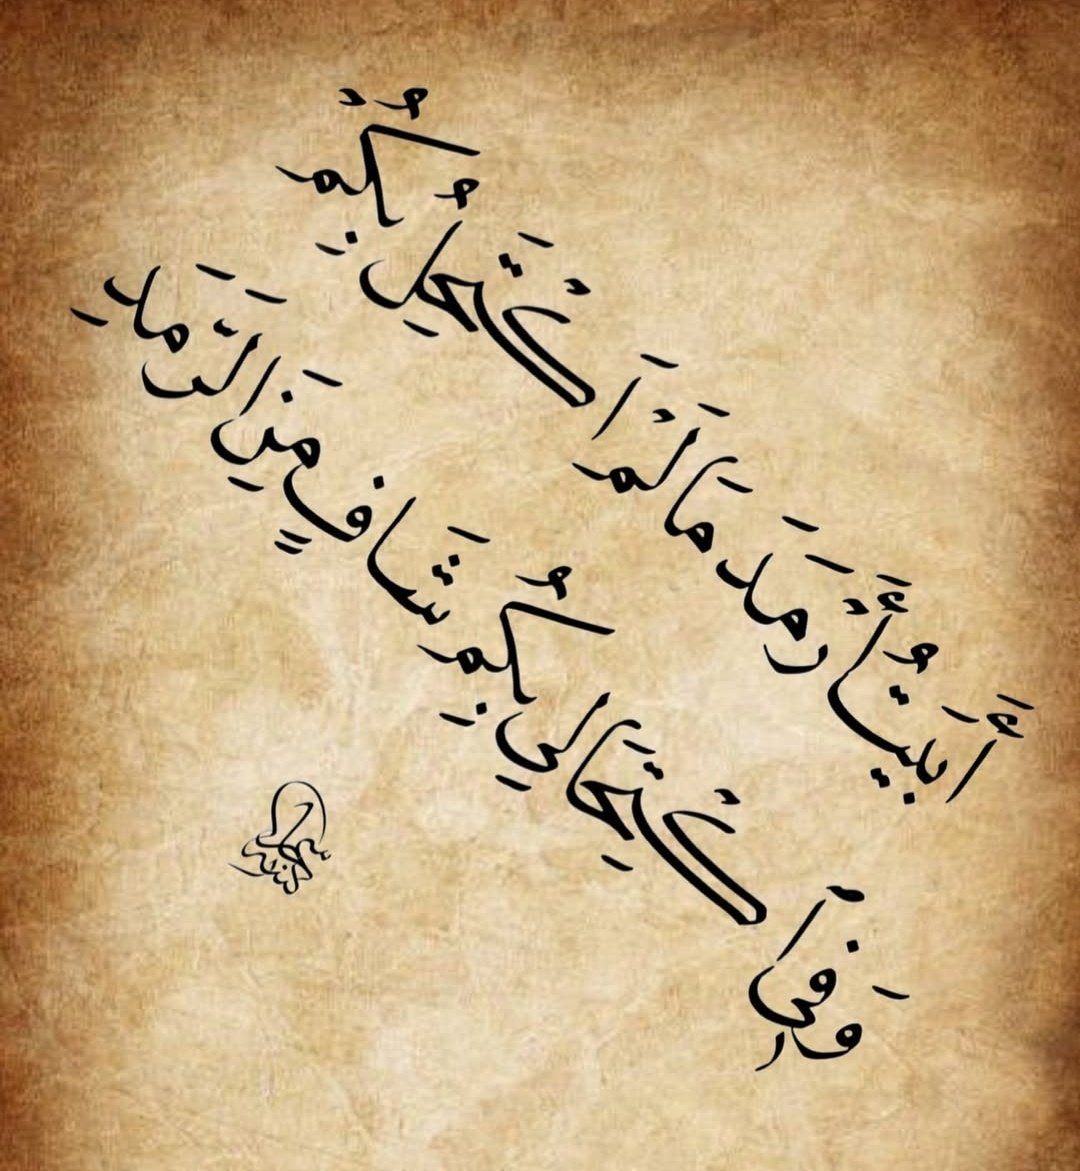 أَبَيْتُ أَرْمَدَ مَا لَمْ أَكْتَحِلْ بِكُمُ
وَفِي ٱكْتِحَالِي بِكُمْ شَافٍ مِنَ الرَّمَدِ